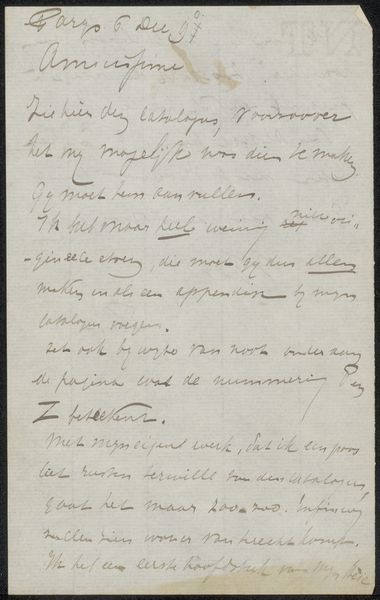 Parys 6 Dec 97
Amicissime
Ziehier den catalogus, voorzoover
het my mogelijk was dien te maken
Gy moet hem aanvullen.
Ik heb maar heel weinig
-gineele etsen, die moet gy dus allen
maken en als een appendix by mijn
catalogus voegen.
Zet ook by wyze van noot onder aan
de pagina wat de nummering P en
I beteekent.
Met myn eigen werk, dat ik een poos
liet rusten terwille van den catalogus,
gaat het maar zoo-zoo. Enfin wy
zullen zien wat er van terecht komt.
Ik heb een eerste hoofdstuk van myn